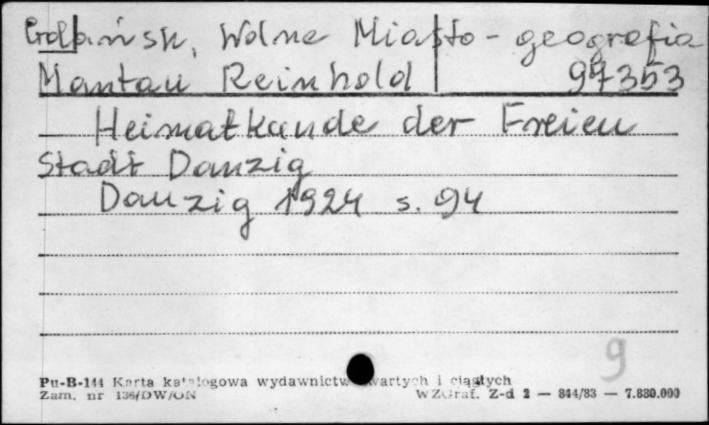 Gdańsk, Wolne Miasto - geografia
Mantau Reinhold 97353
Heimatkunde der Freien
Stadt Danzig
Danzig 1924 s. 94
9
Pu-B-144 Karta katalogowa wydawnictw zwartych i ciągłych
Zam. nr 136/DW/ON WZGraf. Z-d 2 — 844/83 — 7.880.000